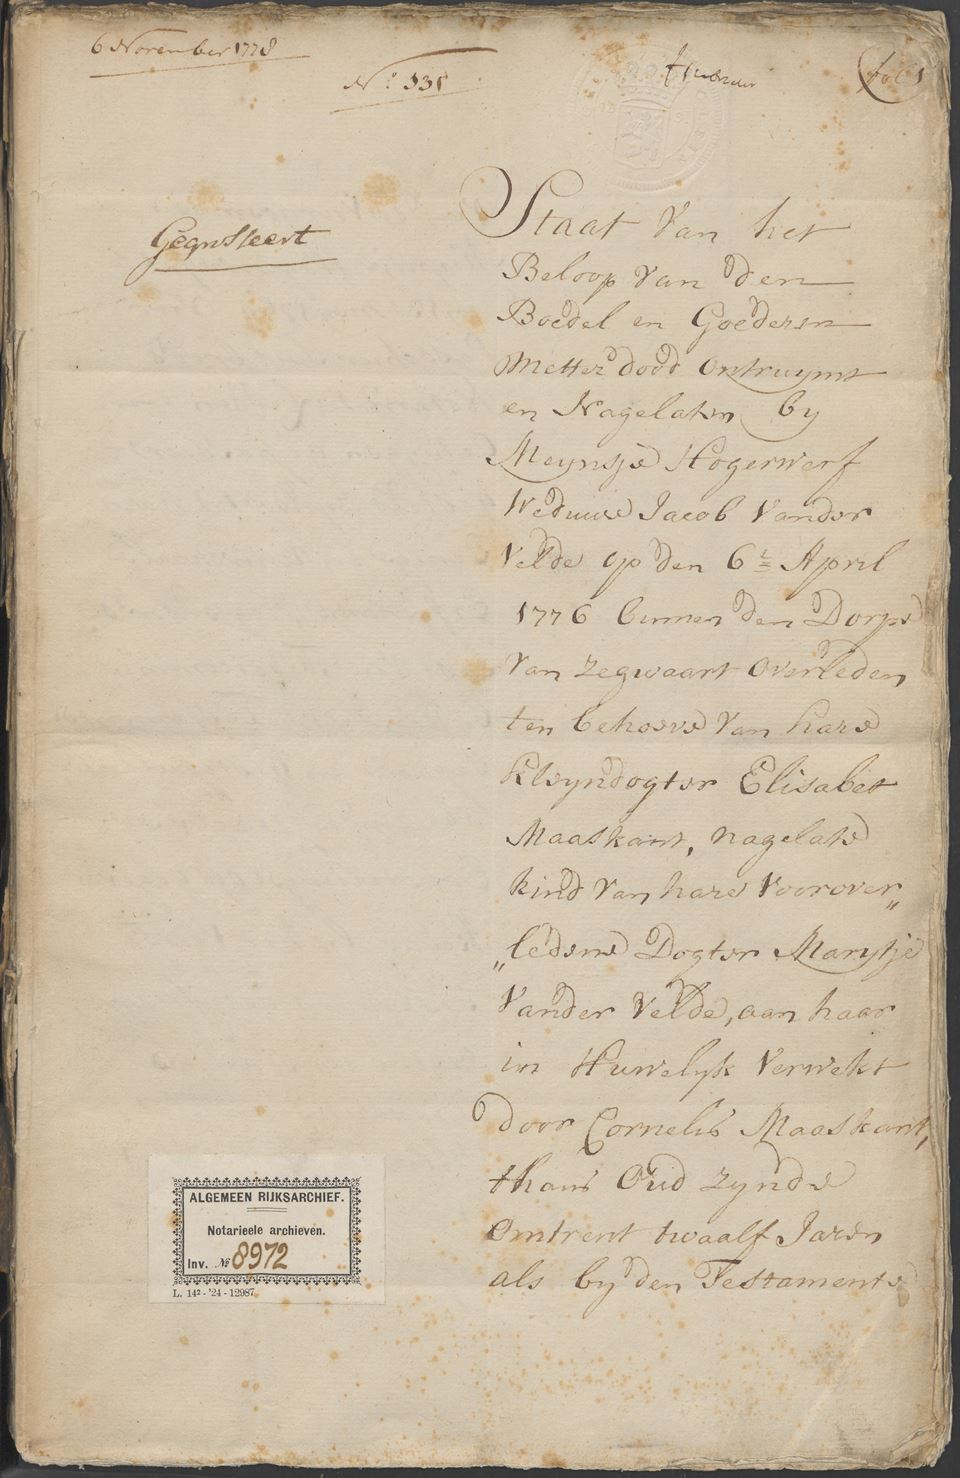 6 November 1778
No: 331
fol 1
Gegrosseert
Staat Van het
Beloop Van den
Boedel en Goederen
Metter dood Ontruymt
en Nagelaten by
Meynsje Hogerwerf
Weduwe Jacob Vander
Velde op den 6e April
1776 binnen den Dorpe
Van Zegwaart Overleden
ten behoeve Van hare
Kleyndogter Elisabet
Maaskant, nagelate
kind Van hare Voorover„
„ledene Dogter Marytje
Vander Velde, aan haar
in Huwelyk Verwekt
door Cornelis Maaskant,
thans Oud Zynde
Omtrent twaalf Jaren
als by den Testamente
ALGEMEEN RIJKSARCHIEF.
Notarieele archieven.
Inv. No 8972
L. 14² - '24 - 12987